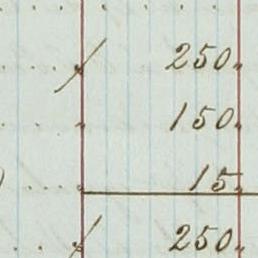 250.
150.
15.
250.